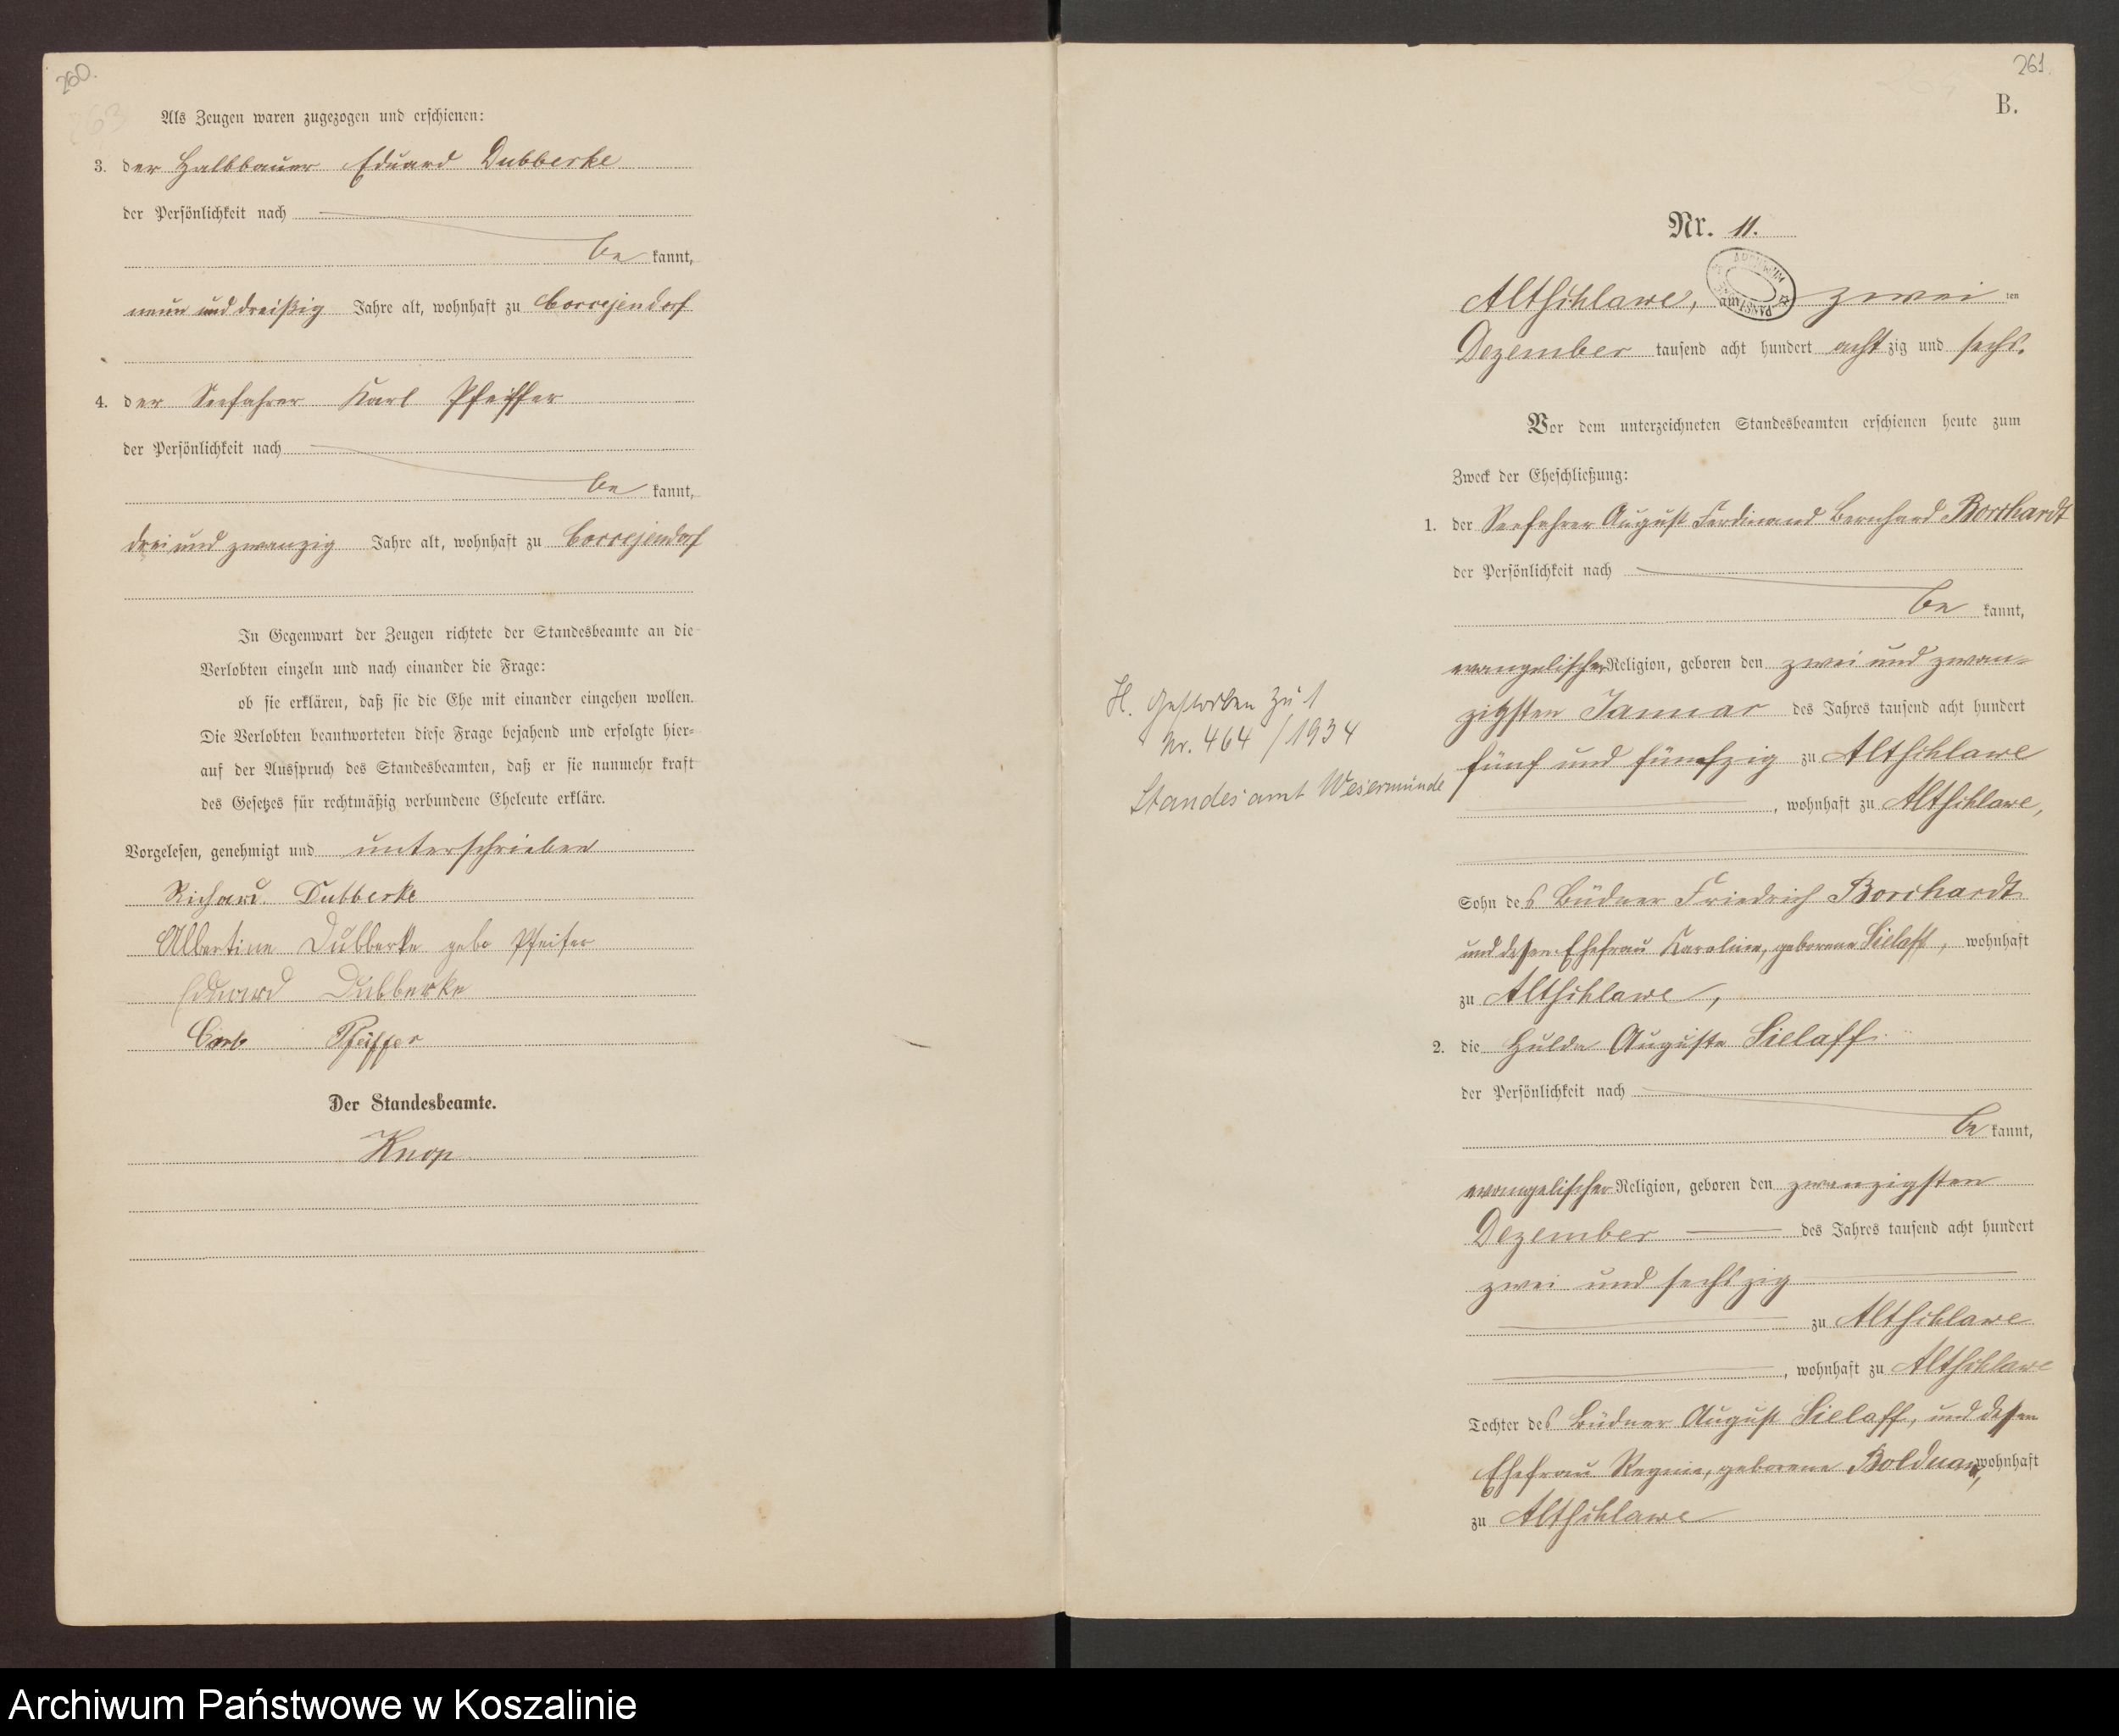 260.
Als Zeugen waren zugezogen und erschienen:
3. der Halbbauer Eduard Dubberke
der Persönlichkeit nach
be kannt,
neun und dreißig Jahre alt, wohnhaft zu Coccejendorf
4. der Seefahrer Karl Pfeiffer
der Persönlichkeit nach
be kannt,
drei und zwanzig Jahre alt, wohnhaft zu Coccejendorf
In Gegenwart der Zeugen richtete der Standesbeamte an die
Verlobten einzeln und nach einander die Frage:
ob sie erklären, daß sie die Ehe mit einander eingehen wollen.
Die Verlobten beantworteten diese Frage bejahend und erfolgte hier-
auf der Ausspruch des Standesbeamten, daß er sie nunmehr kraft
des Gesetzes für rechtmäßig verbundene Eheleute erkläre.
Vorgelesen, genehmigt und unterschrieben
Richard Dubberke
Albertine Dubberke gebo Pfeifer
Eduard Dubberke
Carl Pfeiffer
Der Standesbeamte.
Knop
261.
B.
Nr. 11.
Altschlawe, am zwei ten
Dezember tausend acht hundert achtzig und sechs.
Vor dem unterzeichneten Standesbeamten erschienen heute zum
Zweck der Eheschließung:
1. der Seefahrer August Ferdinand Bernhard Borchardt
der Persönlichkeit nach
be kannt,
evangelischer Religion, geboren den zwei und zwan-
zigsten Januar des Jahres tausend acht hundert
fünf und fünfzig zu Altschlawe
, wohnhaft zu Altschlawe,
H. Gestorben zu 1
Nr. 464/1934
Standesamt Wesermünde
Sohn des Büdner Friedrich Borchardt
und dessen Ehefrau Karoline, geborene Sielaff, wohnhaft
zu Altschlawe,
2. die Hulda Auguste Sielaff
der Persönlichkeit nach
be kannt,
evangelischer Religion, geboren den zwanzigsten
Dezember des Jahres tausend acht hundert
zwei und sechszig
zu Altschlawe
, wohnhaft zu Altschlawe
Tochter des Büdner August Sielaff, und dessen
Ehefrau Regine, geborene Balduan, wohnhaft
zu Altschlawe
Archiwum Państwowe w Koszalinie